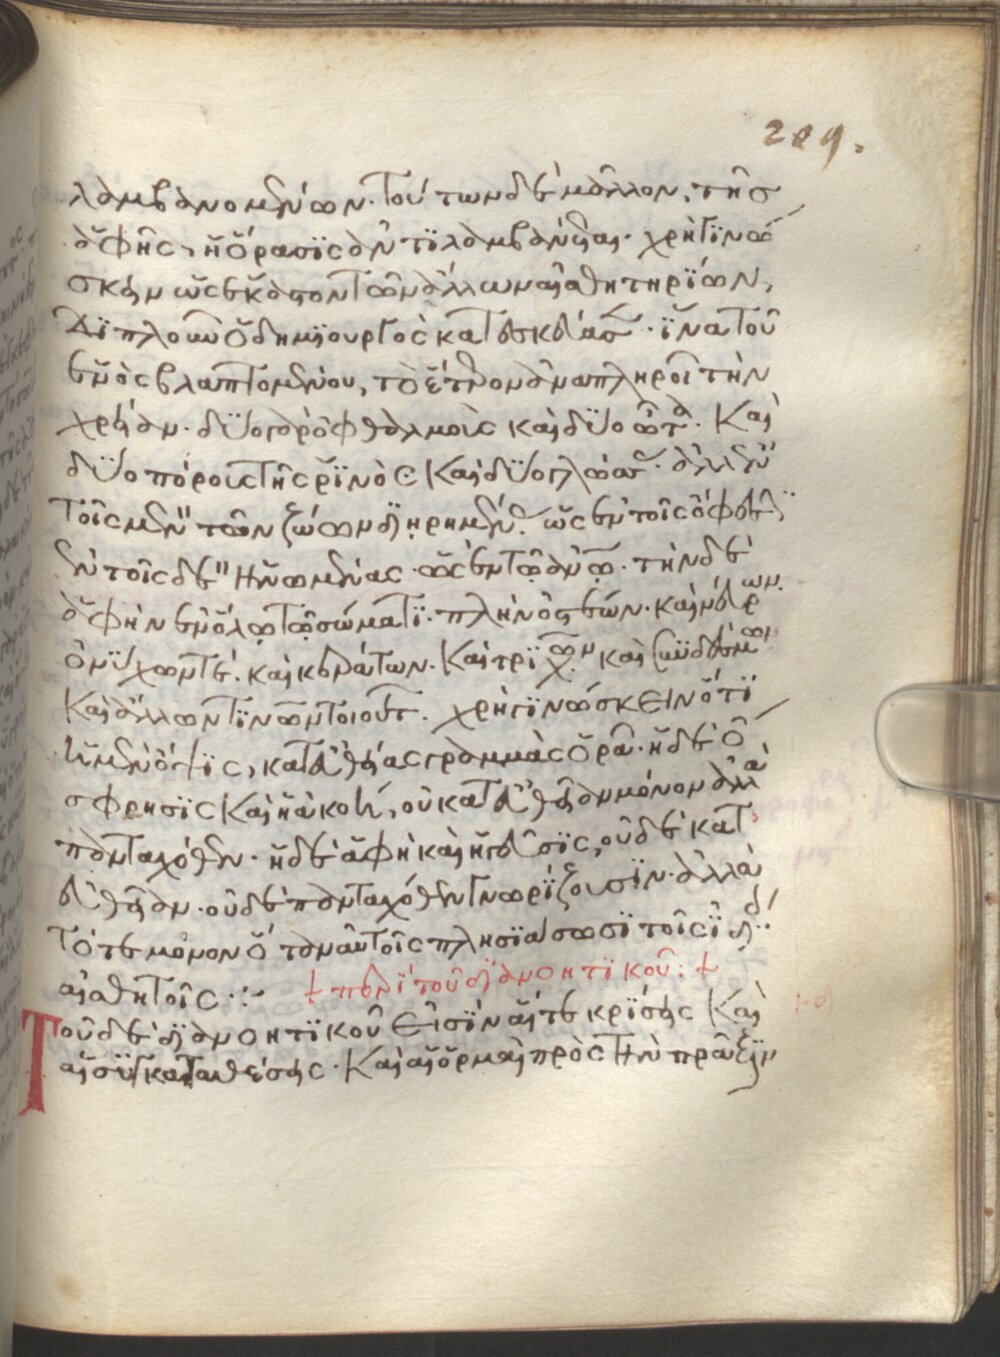 209.
λαμβανομένων. τούτων δὲ μᾶλλον, τῆς
ἁφῆς, ἡ ὅρασϊς ἀντϊλαμβάνεται. χρὴ γϊνώ
σκειν ὡς ἕκαστον τῶν ἄλλων αἰσθητηρϊων,
διπλοῦν ὁ δημϊουργὸς κατεσκεύασε. ἵνα τοῦ
ἑνὸς βλαπτομένου, τὸ ἕτερον ἀναπληροῖ τὴν
χρείαν. δύο γὰρ ὀφθαλμοὶς καὶ δύο ὦτα. Καὶ
δύο πόρους τῆς ῥινὸς Καὶ δύο γλώσσας. ἀλλ' ἐν
τοῖς μὲν τῶν ζώων διῃρημένας. ὡς ἐν τοῖς ὄφεσϊ
ἐν τοῖς δὲ ἡνωμένας. ὡς ἐν τῷ ἀνθρώπῳ. τὴν δὲ
ἁφὴν ἐν ὅλῳ τῷ σώματϊ. πλὴν ὀστέων. καὶ νεύρων.
ὀνύχων τε. καὶ κεράτων. Καὶ τριχῶν καὶ συνδέσμων
Καὶ ἄλλων τϊνῶν τοιούτων. χρὴ γϊνώσκειν ὅτϊ
ἡ μὲν ὄψϊς, κατ' εὐθείας γραμμὰς ὁρᾶ. ἡ δὲ ὄ
σφρησϊς Καὶ ἡ ἀκοὴ, οὐ κατ' εὐθεῖαν μόνον ἀλλὰ
πανταχόθεν. ἡ δὲ ἁφὴ καὶ ἡ γεῦσϊς, οὐδὲ κατ'
εὐθεῖαν. οὐδὲ πανταχόθεν γνωρίζουσϊν. ἀλλὰ
τότε μόνον ὅταν αὐτοῖς πλησϊάσωσϊ τοῖς ἰδίοις
αἰσθητοῖς .:
+ περὶ τοῦ διανοητϊκοῦ: +
Τοῦ δὲ διανοητϊκοῦ εἰσὶν αἵ τε κρϊσεις Καὶ
αἱ συγκαταθέσεις. Καὶ αἱ ὁρμαὶ πρὸς τὴν πρᾶξϊν